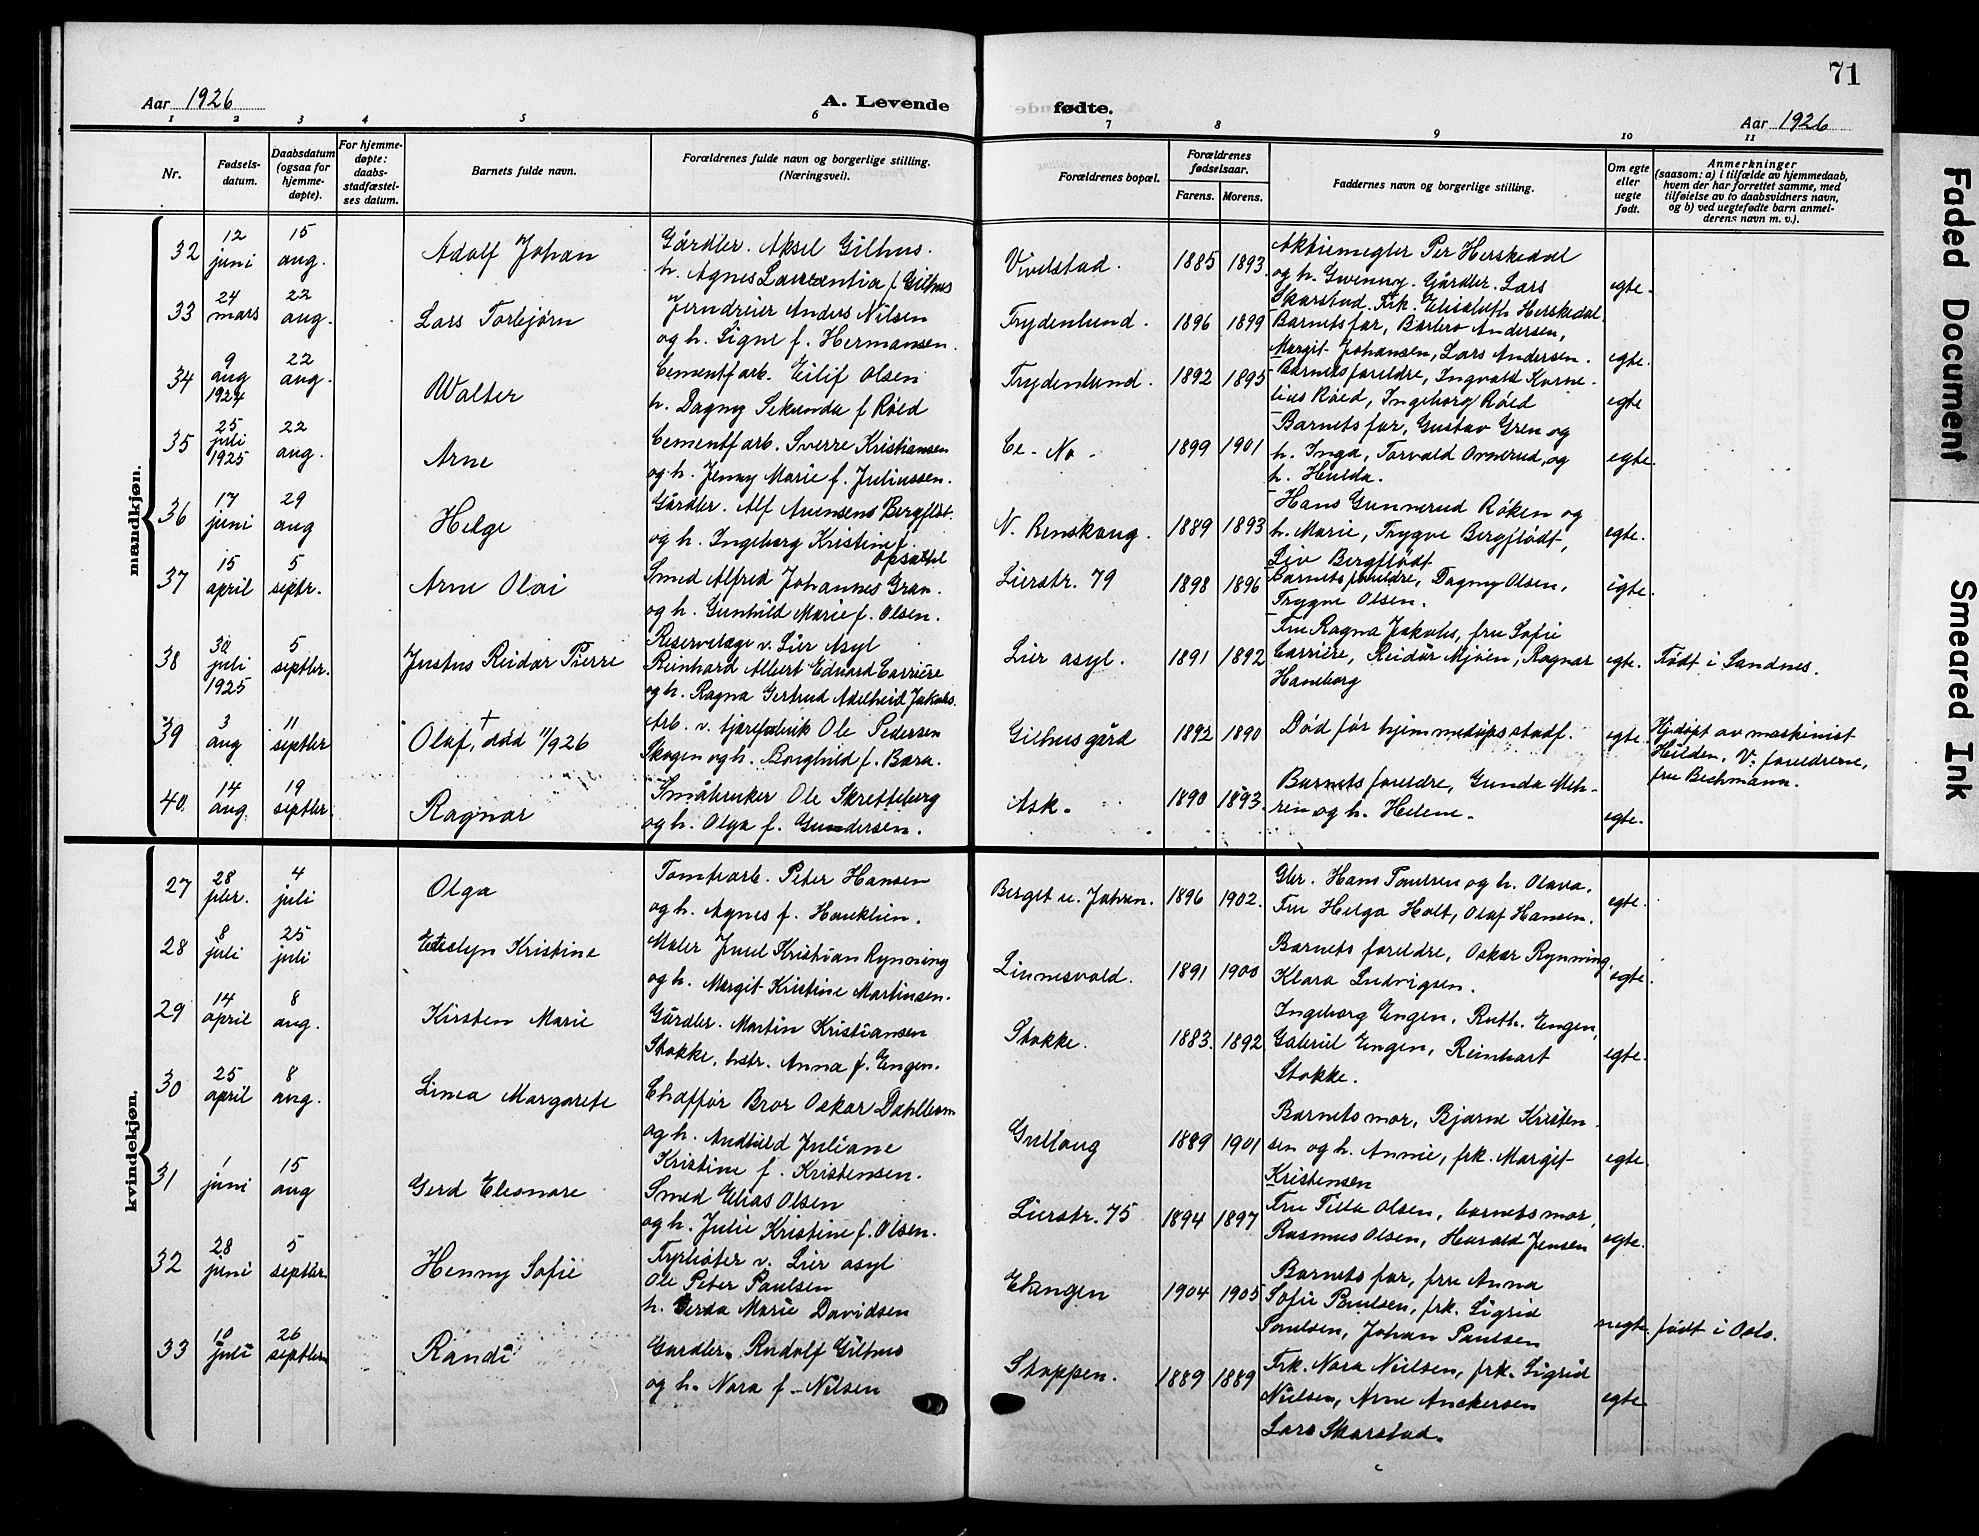 71
Aar 1926
A. Levende
fødte.
Aar 1926
1 2 3 4 5 6 7 8 9 10 11
Nr.
Fødsels-
datum.
Daabsdatum
(ogsaa for
hjemme-
døpte).
For hjemme-
døpte:
daabs-
stadfæstel-
ses datum.
Barnets fulde navn.
Forældrenes fulde navn og borgerlige stilling.
(Næringsvei).
Forældrenes bopæl.
Forældrenes
fødselsaar.
Farens. Morens.
Faddernes navn og borgerlige stilling.
Om egte
eller
uegte
født.
Anmerkninger
(saasom: a) i tilfælde av hjemmedaab,
hvem der har forrettet samme, med
tilføielse av to daabsvidners navn,
og b) ved uegtefødte barn anmel-
derens navn m. v.).
mandkjøn.
32
12
juni
15
aug.
Adolf Johan
Gårdbr. Aksel Gilhus.
h. Agnes Laurentia f. Gilhus
Vivelstad.
1885 1893
Aktiemegler Per Herskedal
og h. Gwenny. Gårdbr. Lars
Skarstad. Frk. Elisabeth Herskedal.
egte.
33
24
mars
22
aug.
Lars Torbjørn
Jerndreier Anders Nilsen
og h. Signe f. Hermansen.
Frydenlund.
1896 1899
Barnets far, Barbro Andersen,
Margit Johansen, Lars Andersen.
egte.
34
9
aug
1924
22
aug.
Walter
Cementfarb. Eilif Olsen
h. Dagny Sekunda f Røed
Frydenlund.
1892 1895
Barnets foreldre, Ingvald Korne-
lius Røed, Ingeborg Røed
egte
35
25
juli
1925
22
aug.
Arne
Cementfarb. Sverre Kristiansen
og h. Jenny Marie f. Juliussen.
Ce - No -
1899 1901
Barnets far, Gustav Gren og
h. Inga, Torvald Ovnerud, og
h. Hulda.
egte.
36
17
juni
29
aug
Helge
Gårdbr. Alf Avensens Bergflødt.
og h. Ingeborg Kristine f.
Opsahl
N. Renskaug.
1889 1893
Hans Gunnerud Røken og
h. Marie, Trygve Bergflødt,
Liv Bergflødt
egte.
37
15
april
5
septr.
Arne Olai
Smed Alfred Johannes Gran.
og h. Gunhild Marie f. Olsen.
Lierstr. 79
1898 1896
Barnets foreldre, Dagny Olsen,
Trygve Olsen.
egte.
38
30
juli
1925
5
septbr.
Justus Reidar Pierre
Reservelæge v. Lier Asyl
Reinhard Albert Eduard Carriére
og h. Ragna Gertrud Adelheid Jakobs.
Lier asyl.
1891 1892
Fru Ragna Jakobs, fru Sofie
Carriére, Reidar Mjøen, Ragnar
Haneborg
egte.
Født i Sandnes.
39
3
aug
11
septbr
Olaf, † død 11/926
Arb. v. tjærefabrik Ole Pedersen
Skogen og h. Borghild f. Bara.
Gilhusgård
1892 1890
Død før hjemmedøpsstadf.
egte.
Hjdøpt av maskinist
Hilden. V. foreldrene,
fru Bechmann.
40.
14
aug.
19
septbr.
Ragnar
Småbruker Ole Skretteberg
og h. Olga f. Gundersen.
Ask.
1890 1893.
Barnets foreldre, Gunda Meh-
ren og h. Helene.
egte.
kvindekjøn.
27
28
febr.
4
juli
Olga
Tomtearb. Peter Hansen
og h. Agnes f. Hauklien.
Berget u. Jahren.
1896 1902.
Gbr. Hans Poulsen og h. Olava.
Fru Helga Holt, Olaf Hansen.
egte.
28
8
juli
25
juli
Evelyn Kristine
Maler Juul Kristian Rynning
og h. Margit Kristine Martinsen.
Linnesvold.
1891 1900
Barnets foreldre, Oskar Rynning,
Klara Ludvigsen.
egte.
29
14
april
8
aug.
Kirsten Marie
Gårdbr. Martin Kristiansen
Stokke, hstr. Anna f. Engen.
Stokke.
1883. 1892.
Ingeborg Engen, Ruth Engen,
Gabriel Engen, Reinhart
Stokke.
egte.
30
25
april
8
aug.
Linea Margarete
Chaffør Bror Oskar Dahlbom
og h. Andhild Juliane
Kristine f. Kristensen.
Gullaug
1889 1901
Barnets mor, Bjarne Kristen-
sen og h. Annie, frk. Margit
Kristensen
egte.
31
1
juni
15
aug
Gerd Eleonore
Smed Elias Olsen
og h. Julie Kristine f. Olsen.
Lierstr. 75
1894 1897
Fru Tilla Olsen, barnets mor,
Rasmus Olsen, Harald Jensen
egte.
32
28
juni
5
septbr.
Henny Sofie
Fyrbøter v. Lier asyl
Ole Peter Paulsen
h. Gerda Marie Davidsen
Engen
1904 1905
Barnets far, fru Anna
Sofie Paulsen, frk. Sigrid
Paulsen, Johan Paulsen
uegte.
født i Oslo.
33
10
juli
26
septbr.
Randi
Gardbr. Rudolf Gilhus
og h. Nora f. Nilsen
Stoppen.
1889 1889
Frk. Nora Nielsen, frk. Sigrid
Nielsen, Arne Anckersen
Lars Skarstad.
egte.
Faded Document
Smeared Ink